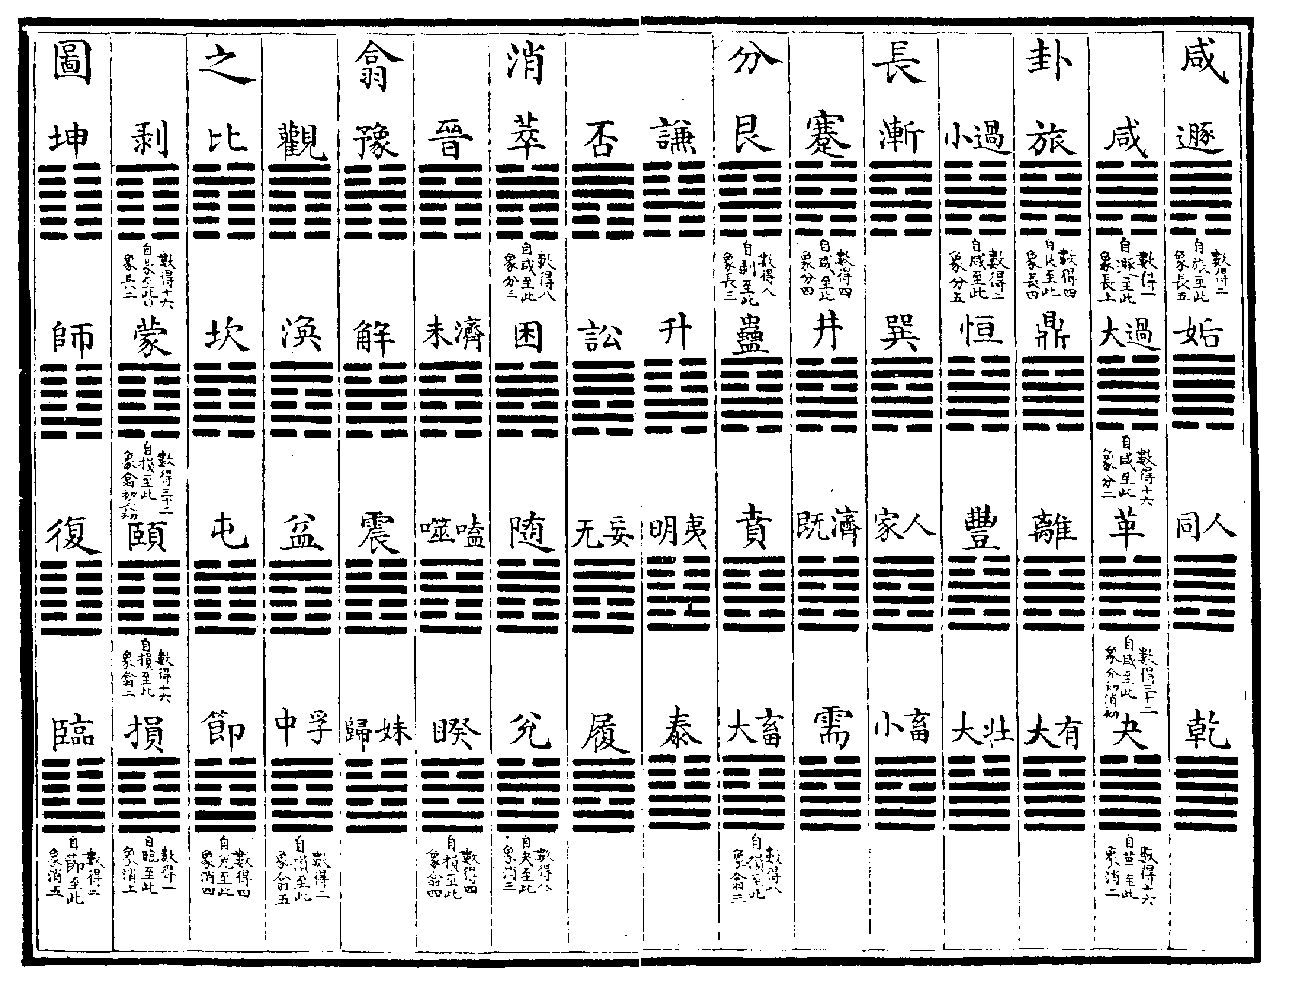 咸卦長分消翕之圖
遯 咸 旅 小過 漸 蹇 艮 謙 否 萃 晉 豫 觀 比 剥 坤
數得二自旅至此象長五
數得一自遯至此象長上
數得四自艮至此象長四
數得二自咸至此象分五
數得四自咸至此象分四
數得八自剥至此象長三
數得八自咸至此象分三
數得十六自蒙至此象長二
姤 大過 鼎 恒 巽 井 蠱 升 訟 困 未濟 解 渙 坎 蒙 師
數得十六自咸至此象分二
數得三十二自損至此象翕初長初
同人 革 離 豐 家人 既濟 賁 明夷 无妄 随 噬嗑 震 益 屯 頤 復
數得三十二自咸至此象分初消初
數得十六自損至此象翕二
乾 夬 大有 大壯 小畜 需 大畜 泰 履 兌 睽 歸妹 中孚 節 損 臨
數得十六自革至此象消二
數得八自損至此象翕三
數得八自夬至此象消三
數得四自損至此象翕四
數得二自損至此象翕五
數得四自兌至此象消四
數得一自臨至此象消上
數得二自節至此象消五